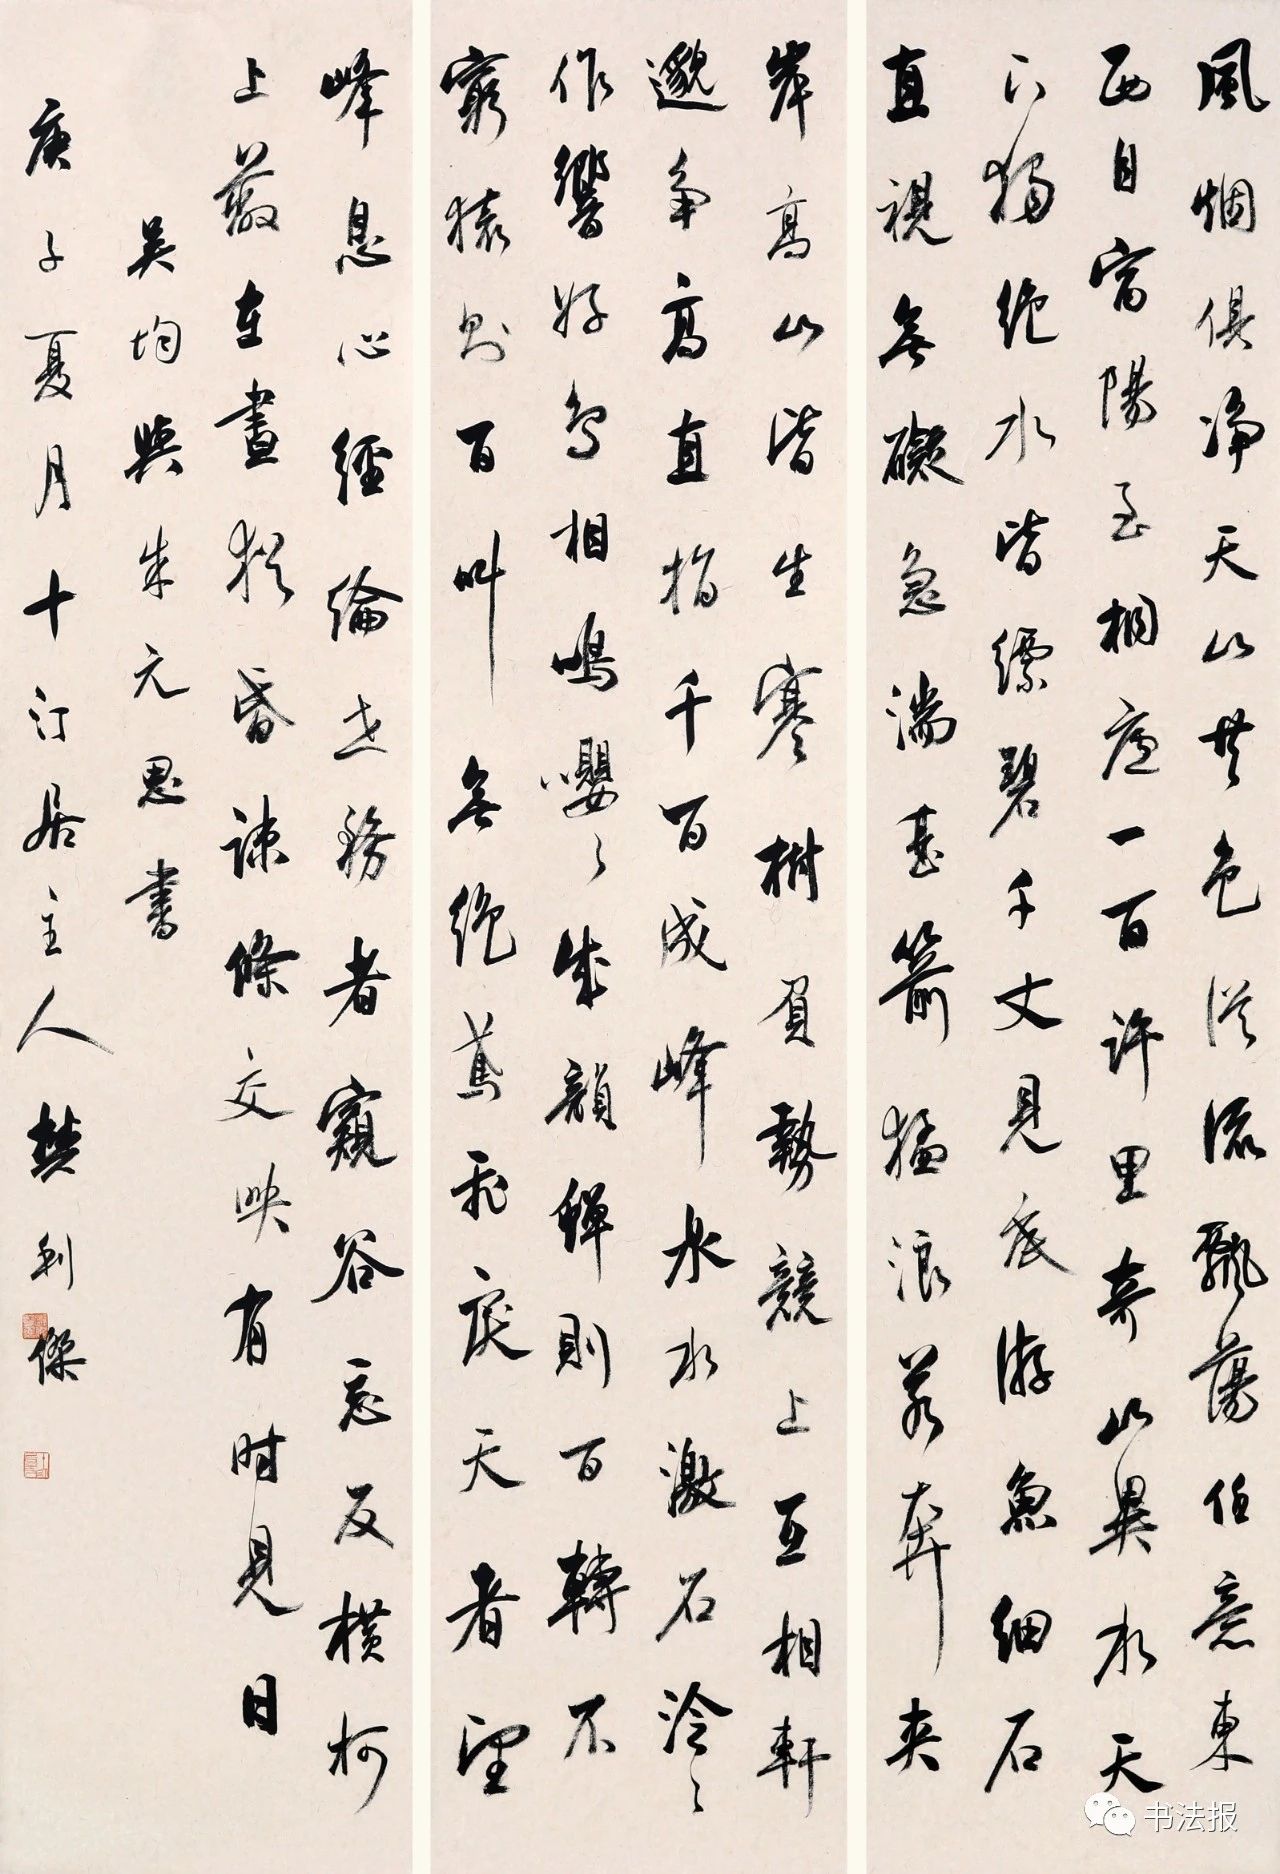 風烟俱淨天山共色從流飄蕩任意東
西自富陽至桐廬一百許里奇山異水天
下獨絕水皆縹碧千丈見底游魚細石
直視無礙急湍甚箭猛浪若奔夹
岸高山皆生寒樹負勢競上互相軒
邈争高直指千百成峰泉水激石泠々
作響好鳥相鳴嚶々成韻蟬則百轉不
窮猿則百叫無絕鳶飛戾天者望
峰息心經綸世務者窺谷忘反橫柯
上蔽在晝猶昏疎條交映有时見日
吳均與朱元思書
庚子夏月十汀居主人樊利傑
书法报